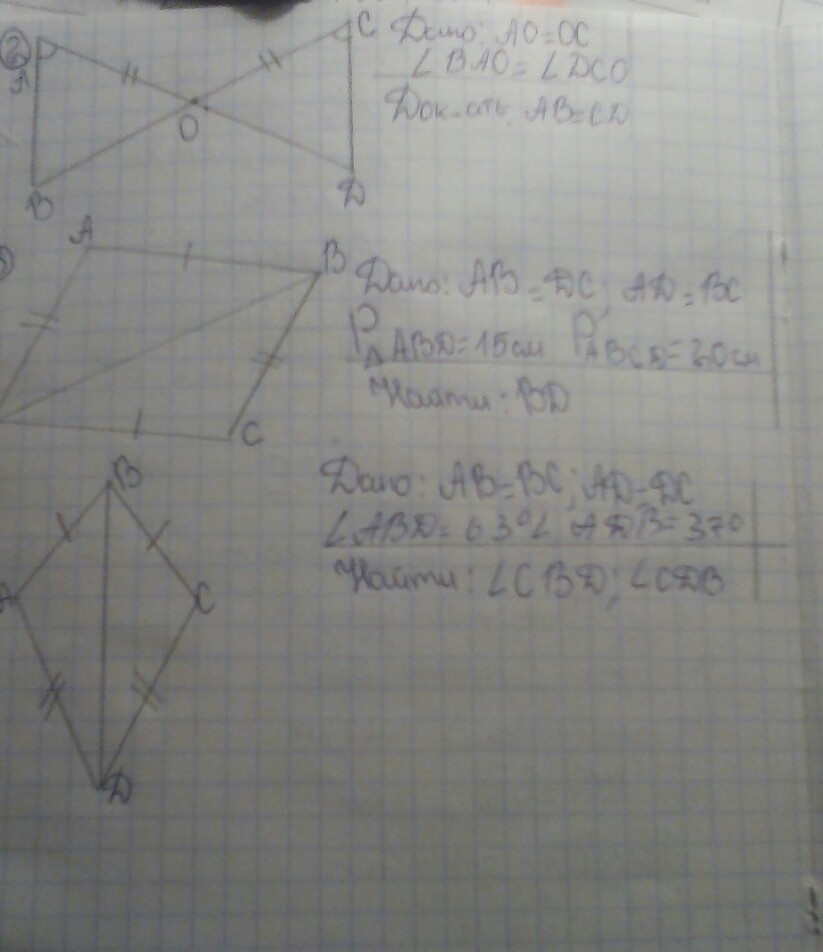 ② C Дано: AO=OC
A ∠BAO=∠DCO
O Док-ать: AB=CD
B D
A B Дано: AB=DC; AD=BC
P△ABD=15см P ABCD=20см
C Найти: BD
B Дано: AB=BC; AD=DC
∠ABD=63° ∠ADB=37°
A C Найти: ∠CBD; ∠CDB
D